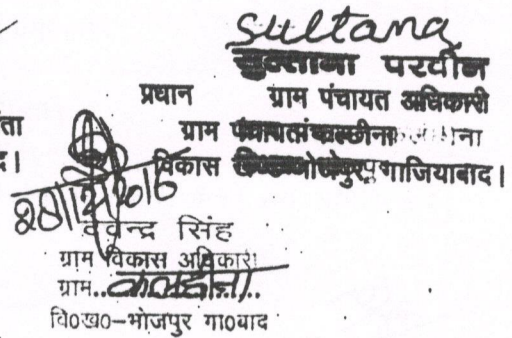 sultana
सुल्ताना परवीन
प्रधान ग्राम पंचायत अधिकारी
ता ग्राम पंचायत कलछीना ना
द। विकास भोजपुर गाजियाबाद।
28/12/2016
देवेन्द्र सिंह
ग्राम विकास अधिकारी
ग्राम..कलछीना..
वि०ख०-भोजपुर गा०बाद